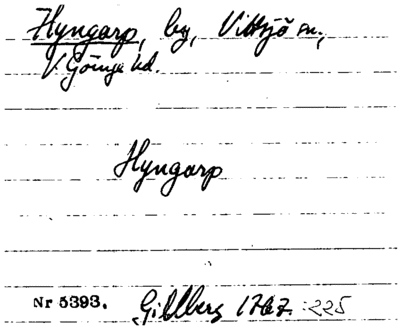 Hyngarp, by, Vittsjö sn.,
V. Göinge hd.
Hyngarp
Nr 5393. Gillberg 1767 :225